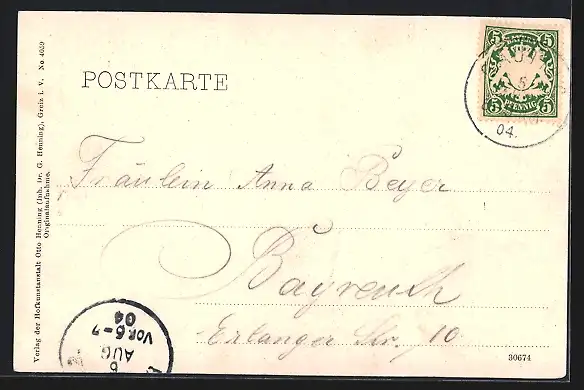 POSTKARTE
5 BAYERN 5
5 PFENNIG 5
5
04.
Fräulein Anna Beyer
Bayreuth
Erlanger Str. 10
Verlag der Hofkunstanstalt Otto Henning (Inh. Dr. G. Henning), Greiz i. V. No 4059
Originalaufnahme.
6
AUG
VOR.6-7
04
30674